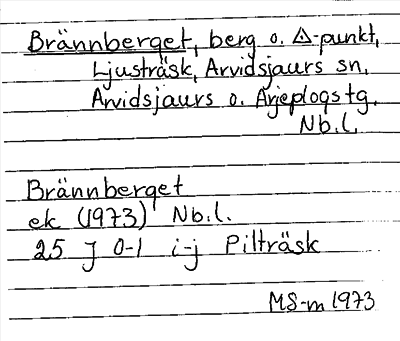 Brännberget, berg o. △-punkt,
Ljusträsk, Arvidsjaurs sn,
Arvidsjaurs o. Arjeplogs tg.
Nb.l.
Brännberget
ek (1973) Nb.l.
25 J 0-1 i-j Pilträsk
MS-m 1973